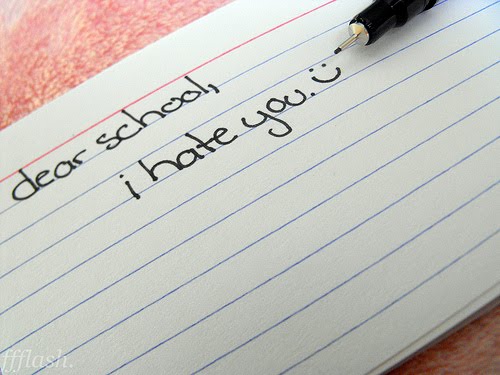 dear school,
i hate you. :)
ffflash.